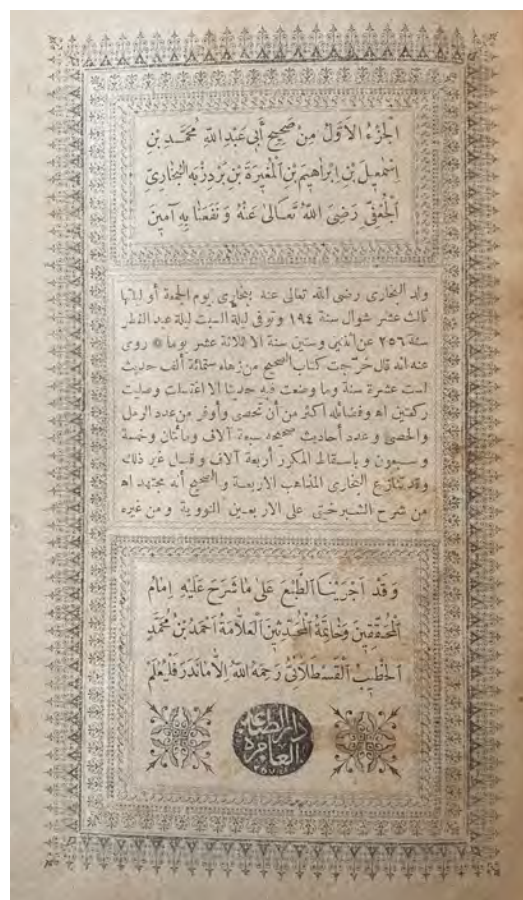 الْجُزْءُ الْاَوَّلُ مِنْ صَحِيحِ أَبِي عَبْدِ اللهِ مُحَمَّدِ بْنِ
إِسْمٰعِيلَ بْنِ إِبْرَاهِيمَ بْنِ الْمُغِيرَةَ بْنِ بَرْدِزْبَه الْبُخَارِيِّ
الْجُعْفِيِّ رَضِيَ اللهُ تَعَالٰى عَنْهُ وَنَفَعَنَا بِهِ آمِينَ
ولد البخارى رضى الله تعالى عنه ببخارى يوم الجمعة أو ليلتها
ثالث عشر شوال سنة ١٩٤ وتوفى ليلة السبت ليلة عيد الفطر
سنة ٢٥٦ عن اثنين وستين سنة الا ثلاثة عشر يوما * روى
عنه انه قال خرّجت كتاب الصحيح من زهاء ستمائة ألف حديث
لست عشرة سنة وما وضعت فيه حديثا الا اغتسلت وصليت
ركعتين اه وفضائله اكثر من أن تحصى وأوفر من عدد الرمل
والحصى وعدد أحاديث صحيحه سبعة آلاف ومائتان وخمسة
وسبعون و باسقاط المكرر أربعة آلاف وقيل غير ذلك
وقد تنازع البخارى المذاهب الاربعة والصحيح أنه مجتهد اه
من شرح الشبرخيتى على الاربعين النووية ومن غيره
وَقَدْ اَجْرَيْنَا الطَّبْعَ عَلٰى مَا شَرَحَ عَلَيْهِ اِمَامُ
الْمُحَقِّقِينَ وَخَاتِمَةُ الْمُحَدِّثِينَ الْعَلَّامَةُ اَحْمَدُ بْنُ مُحَمَّدٍ
الْخَطِيبُ الْقَسْطَلَّانِيُّ رَحِمَهُ اللهُ اِلَّا مَا نَدَرَ فَلْيُعْلَمْ
دار الطباعة
العامره